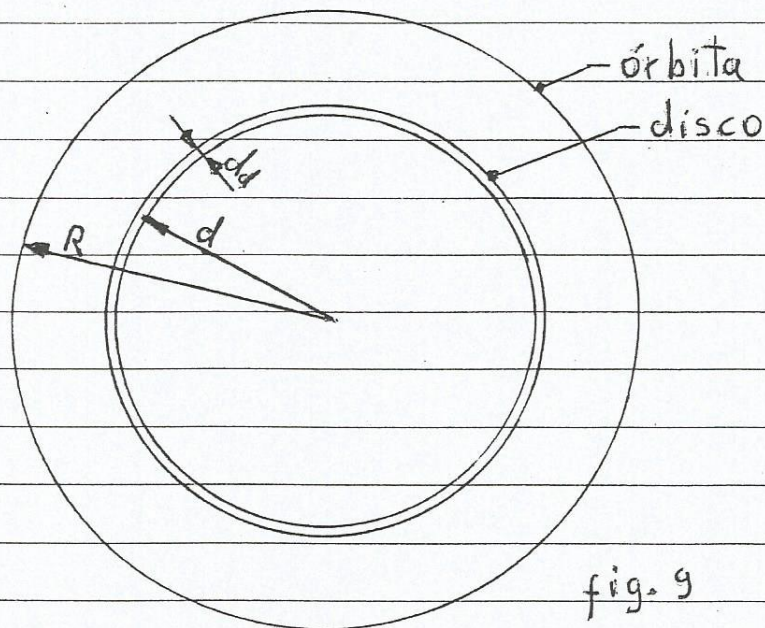 órbita
disco
dd
R
d
fig. 9